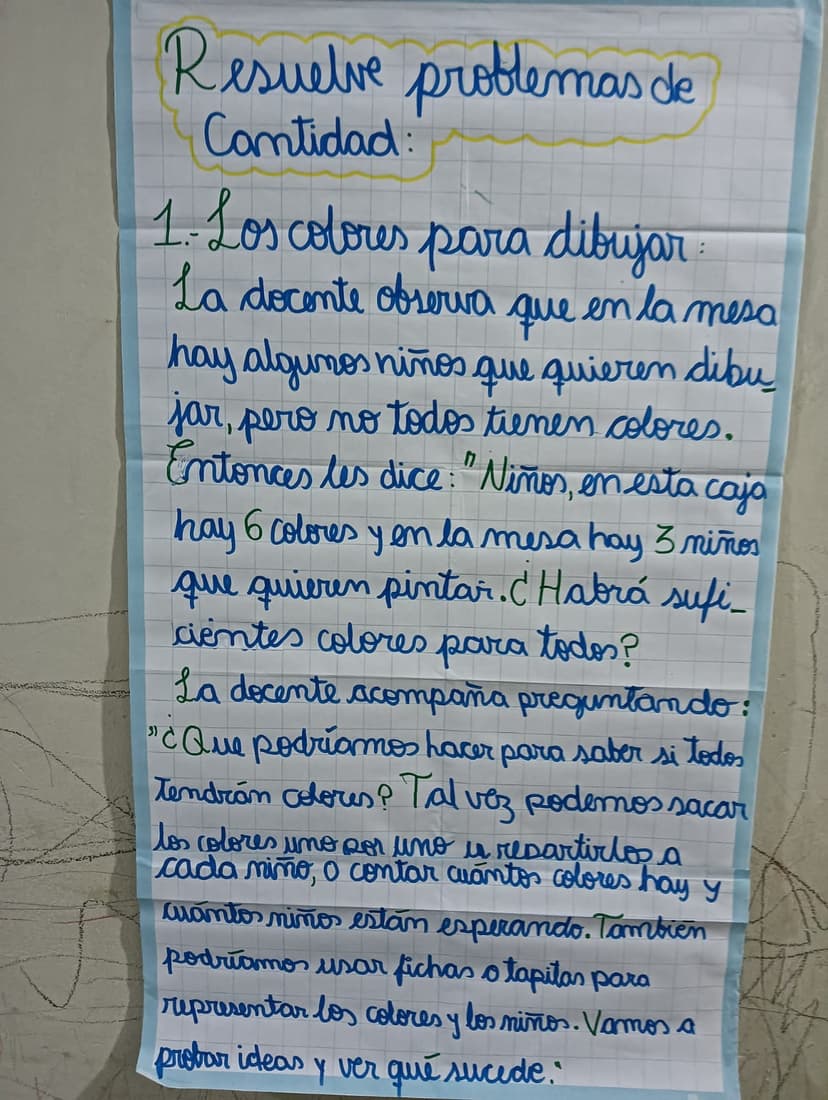 Resuelve problemas de
Cantidad:
1.- Los colores para dibujar:
La docente observa que en la mesa
hay algunos niños que quieren dibu_
jar, pero no todos tienen colores.
Entonces les dice: "Niños, en esta caja
hay 6 colores y en la mesa hay 3 niños
que quieren pintar. ¿Habrá sufi_
cientes colores para todos?
La docente acompaña preguntando:
"¿Que podríamos hacer para saber si todos
tendrán colores? Tal vez podemos sacar
los colores uno por uno y repartirlos a
cada niño, o contar cuántos colores hay y
cuántos niños están esperando. También
podríamos usar fichas o tapitas para
representar los colores y los niños. Vamos a
probar ideas y ver qué sucede."